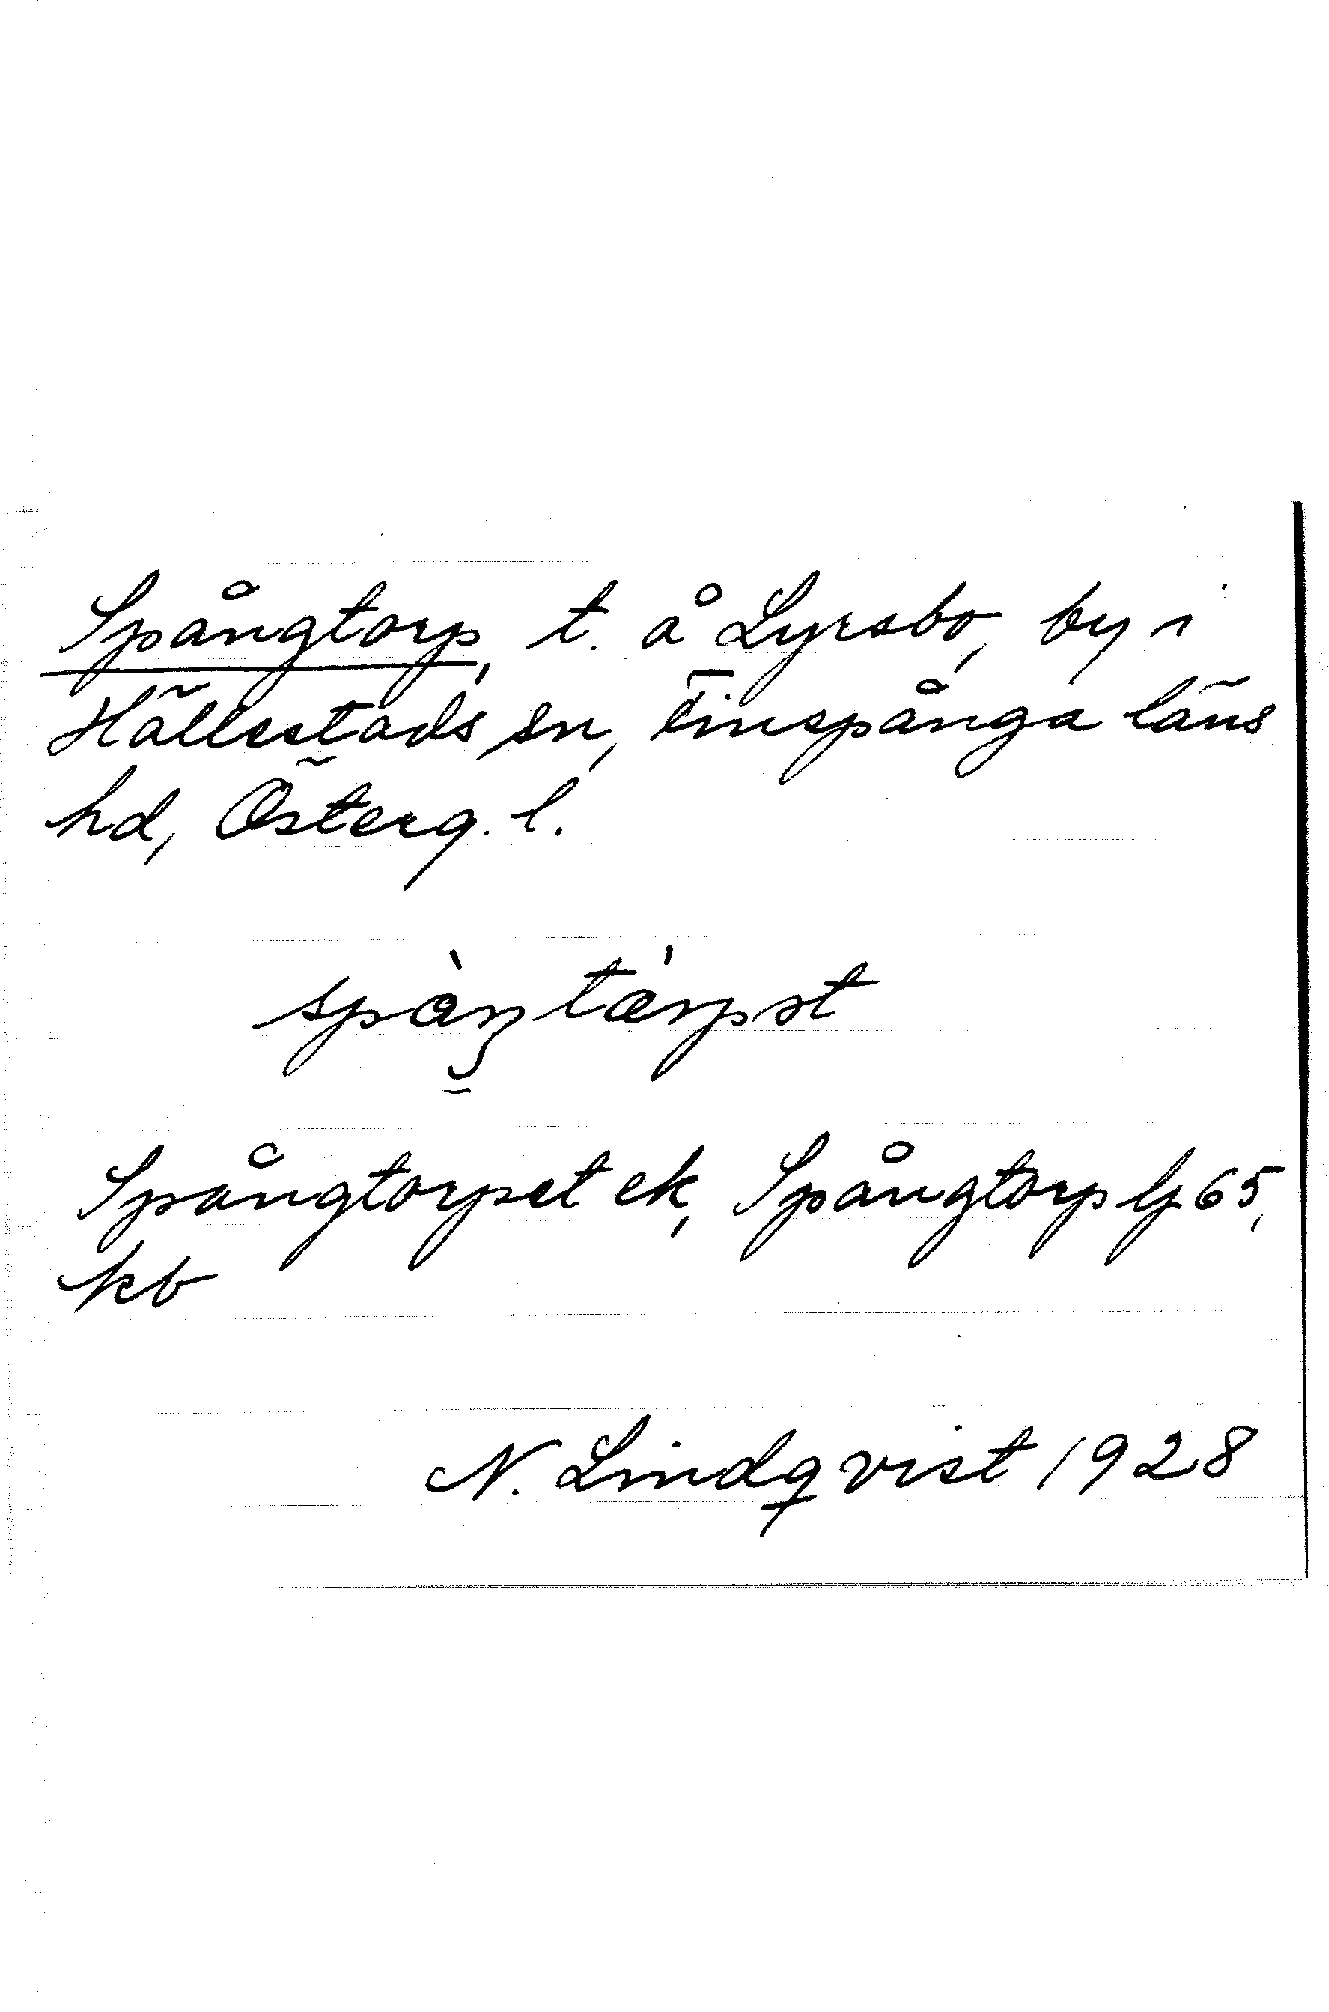 Spångtorp, t. å Lyrsbo, by i
Hällestads sn, Finspånga läns
hd, Österg. l.
spàŋtàrpst
Spångtorpet ek, Spångtorp lj 65,
kb
N. Lindqvist 1928